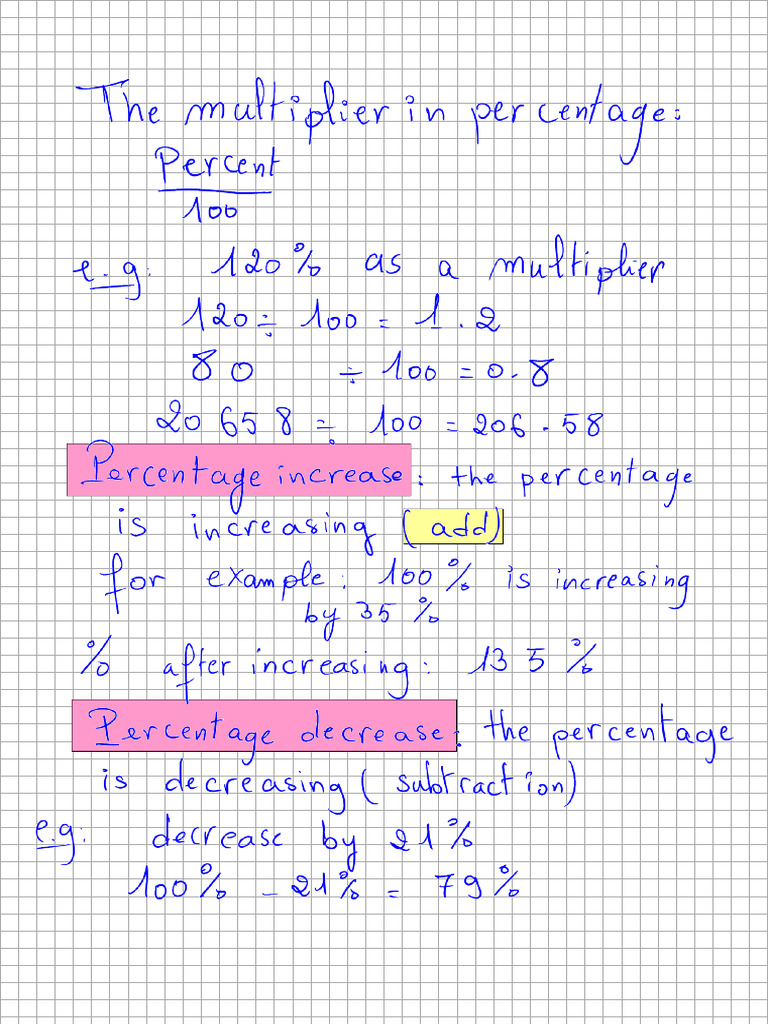 The multiplier in percentage:
Percent
100
e.g: 120% as a multiplier
120 ÷ 100 = 1.2
80 ÷ 100 = 0.8
20 658 ÷ 100 = 206.58
Percentage increase: the percentage
is increasing (add)
for example: 100% is increasing
by 35 %
% after increasing: 135 %
Percentage decrease: the percentage
is decreasing (subtraction)
e.g: decrease by 21%
100% - 21% = 79%